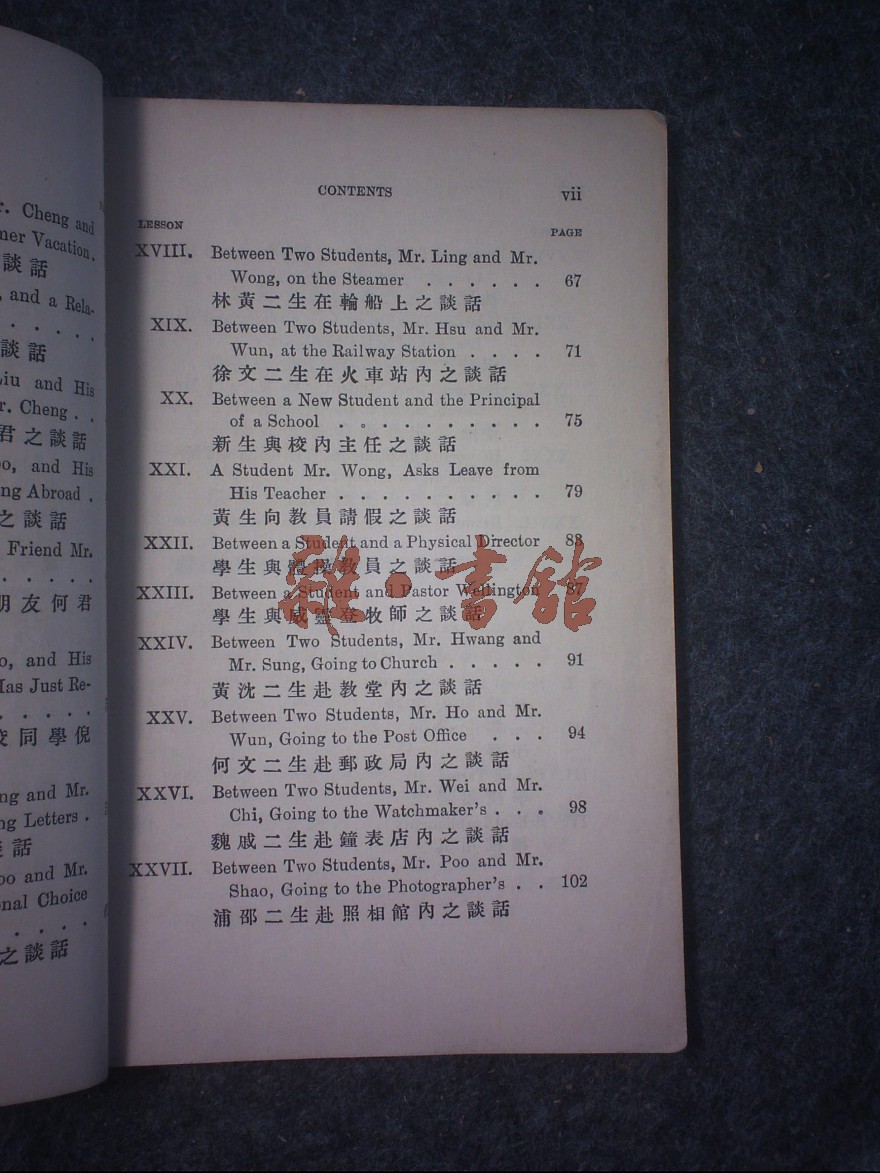 r. Cheng and
mer Vacation.
談話
, and a Rela-
談話
Liu and His
r. Cheng .
君之談話
oo, and His
ng Abroad .
之談話
Friend Mr.
朋友何君
o, and His
Has Just Re-
校同學倪
ng and Mr.
ng Letters .
談話
oo and Mr.
onal Choice
之談話
CONTENTS vii
LESSON PAGE
XVIII. Between Two Students, Mr. Ling and Mr.
Wong, on the Steamer . . . . . . 67
林黃二生在輪船上之談話
XIX. Between Two Students, Mr. Hsu and Mr.
Wun, at the Railway Station . . . . 71
徐文二生在火車站內之談話
XX. Between a New Student and the Principal
of a School . . . . . . . . . . 75
新生與校內主任之談話
XXI. A Student Mr. Wong, Asks Leave from
His Teacher . . . . . . . . . . 79
黃生向教員請假之談話
XXII. Between a Student and a Physical Director 83
學生與體操教員之談話
XXIII. Between a Student and Pastor Wellington 87
學生與威靈登牧師之談話
XXIV. Between Two Students, Mr. Hwang and
Mr. Sung, Going to Church . . . . . 91
黃沈二生赴教堂內之談話
XXV. Between Two Students, Mr. Ho and Mr.
Wun, Going to the Post Office . . . 94
何文二生赴郵政局內之談話
XXVI. Between Two Students, Mr. Wei and Mr.
Chi, Going to the Watchmaker's . . . 98
魏戚二生赴鐘表店內之談話
XXVII. Between Two Students, Mr. Poo and Mr.
Shao, Going to the Photographer's . . 102
浦邵二生赴照相館內之談話
雜·書館